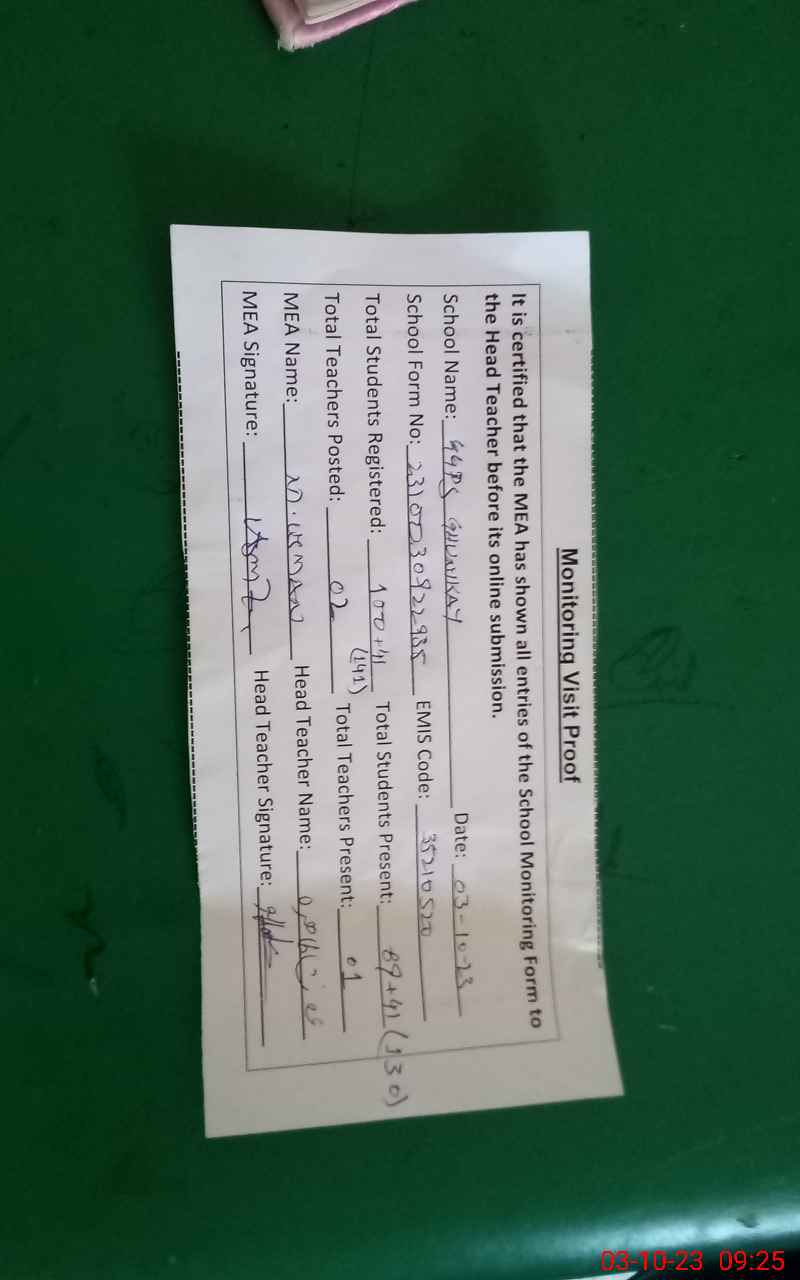 Monitoring Visit Proof
It is certified that the MEA has shown all entries of the School Monitoring Form to
the Head Teacher before its online submission.
School Name: GGPS GHUNKAY Date: 03-10-23
School Form No: 2310030922935 EMIS Code: 35210520
Total Students Registered: 100+41 (141) Total Students Present: 89+41 (130)
Total Teachers Posted: 02 Total Teachers Present: 01
MEA Name: M.USMAN Head Teacher Name:
MEA Signature: Head Teacher Signature:
03-10-23 09:25